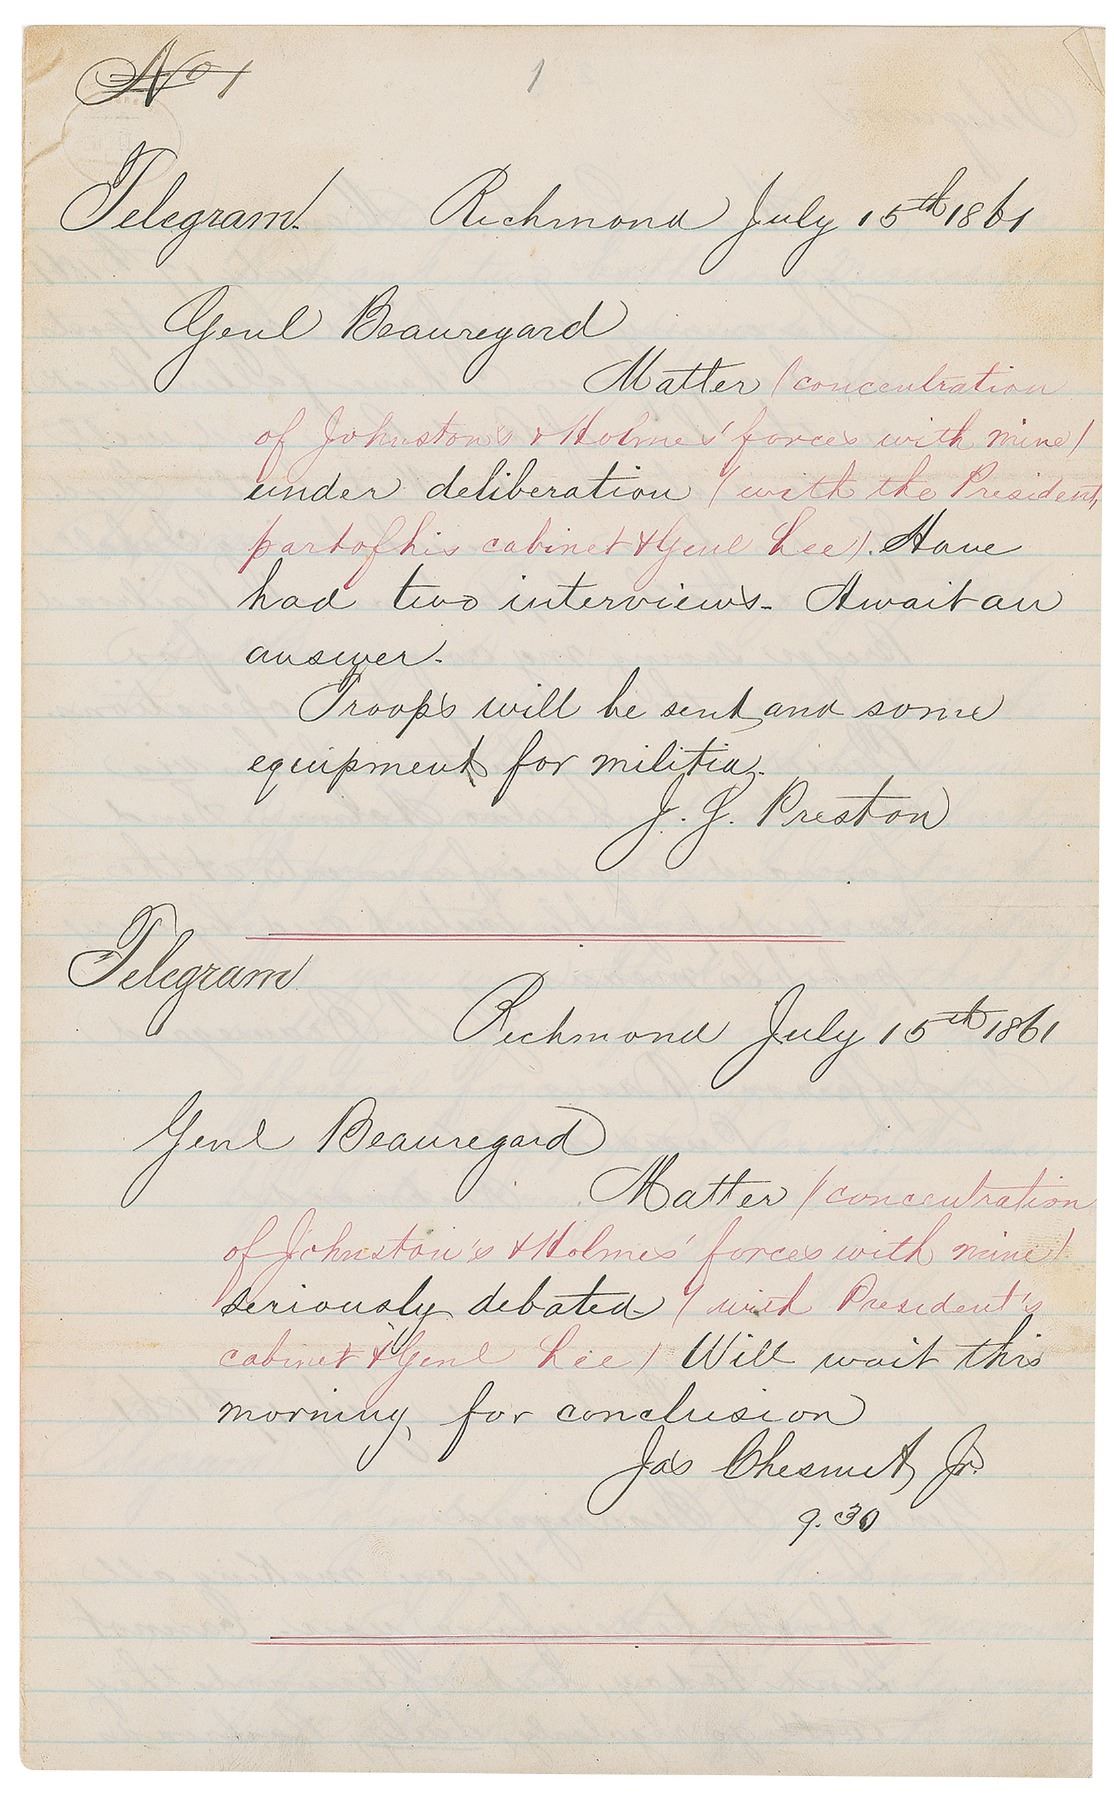 No 1
1
Telegram. Richmond July 15th 1861
Genl Beauregard
Matter (concentration
of Johnston's & Holmes' forces with mine)
under deliberation (with the President,
part of his cabinet & Genl Lee). Have
had two interviews. Await an
answer.
Troops will be sent and some
equipments for militia.
J. S. Preston
Telegram
Richmond July 15th 1861
Genl Beauregard
Matter (concentration
of Johnston's & Holmes' forces with mine)
seriously debated (with President's
cabinet & Genl Lee) Will wait this
morning for conclusion
Jas Chesnut, Jr.
9.30